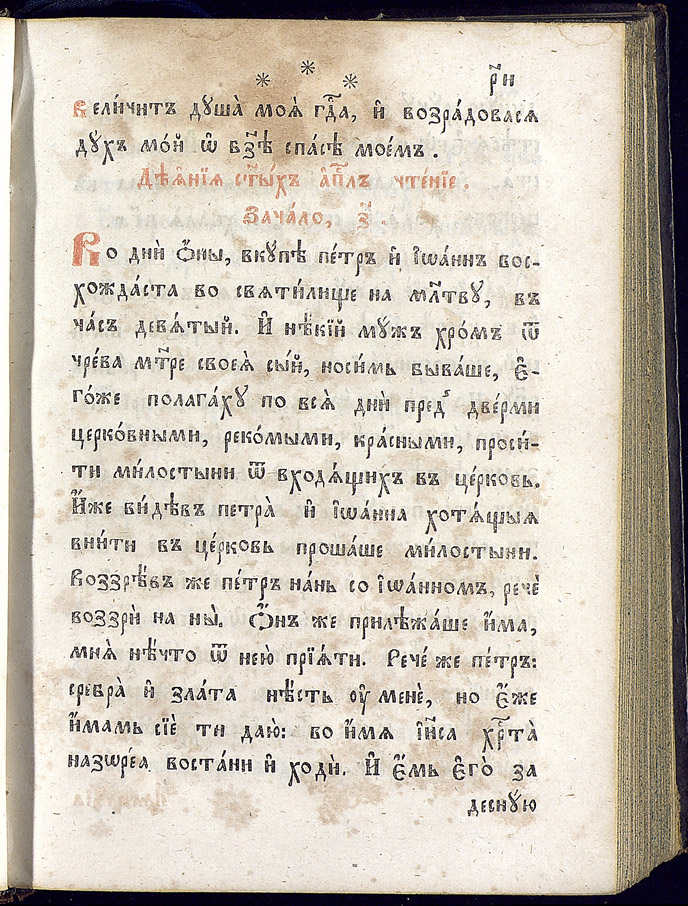 * * *
р҃н
вели́читъ душа̀ моѧ̀ гдⷭ҇а, и҆ возра́довасѧ
дꙋхъ мо́й ѡ҆ бз҃ѣ спа́сѣ мое́мъ.
Дѣѧ҆́нїѧ ст҃ы́хъ а҆пⷭ҇лъ чте́нїе.
Зача́ло, з҃.
Во днѝ ѻ҆́ны, вкꙋ́пѣ пе́тръ и҆ і҆ѡа́ннъ вос-
хожда́ста во свѧти́лище на мл҃твꙋ, въ
ча́съ девѧ́тый. И҆ нѣ́кїй мꙋ́жъ хро́мъ ѿ
чре́ва мт҃ре своеѧ̀ сы́й, носи́мь быва́ше, є҆-
го́же полага́хꙋ по всѧ̀ днѝ пред̾ две́рми
церко́вными, реко́мыми, кра́сными, проси́-
ти ми́лостыни ѿ входѧ́щихъ въ це́рковь.
И҆́же ви́дѣвъ петра̀ и҆ і҆ѡа́нна хотѧ́щыѧ
вни́ти въ це́рковь проша́ше ми́лостыни.
Воззрѣ́въ же пе́тръ на́нь со і҆ѡа́нномъ, речѐ
воззрѝ на ны̀. Ѻ҆́нъ же прилѣжа́ше и҆́ма,
мнѧ̀ нѣ́что ѿ нею̀ прїѧ́ти. Рече́ же пе́тръ:
сребра̀ и҆ зла́та нѣ́сть ᲂу҆ менѐ, но є҆́же
и҆́мамь сїѐ ти даю̀: во и҆́мѧ і҆и҃са хрⷭ҇та̀
назѡре́а воста́ни и҆ ходѝ. И҆ є҆́мь є҆го̀ за
деснꙋ́ю